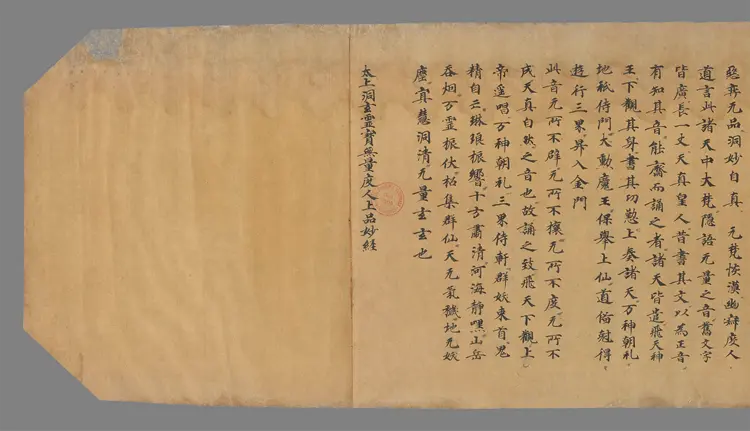 惡弈无品洞妙自真　元梵恢漠幽寂度人
道言此諸天中大梵隱語无量之音舊文字
皆廣長一丈天真皇人昔書其文以為正音
有知其音能齋而誦之者諸天皆遣飛天神
王下觀其身書其功懃上奏諸天万神朝礼
地祇侍門大勳魔王保舉上仙道俗尅得
遊行三界昇入金門
此音无所不辟无所不禳无所不度无所不
成天真自然之音也故誦之致飛天下觀上
帝遥唱万神朝礼三界侍軒群妖束首鬼
精自亡琳琅振響十方肅清河海静嘿山岳
吞烟万霊振伏招集群仙天无氛穢地无妖
塵冥慧洞清无量玄玄也
太上洞玄靈寳无量度人上品妙經